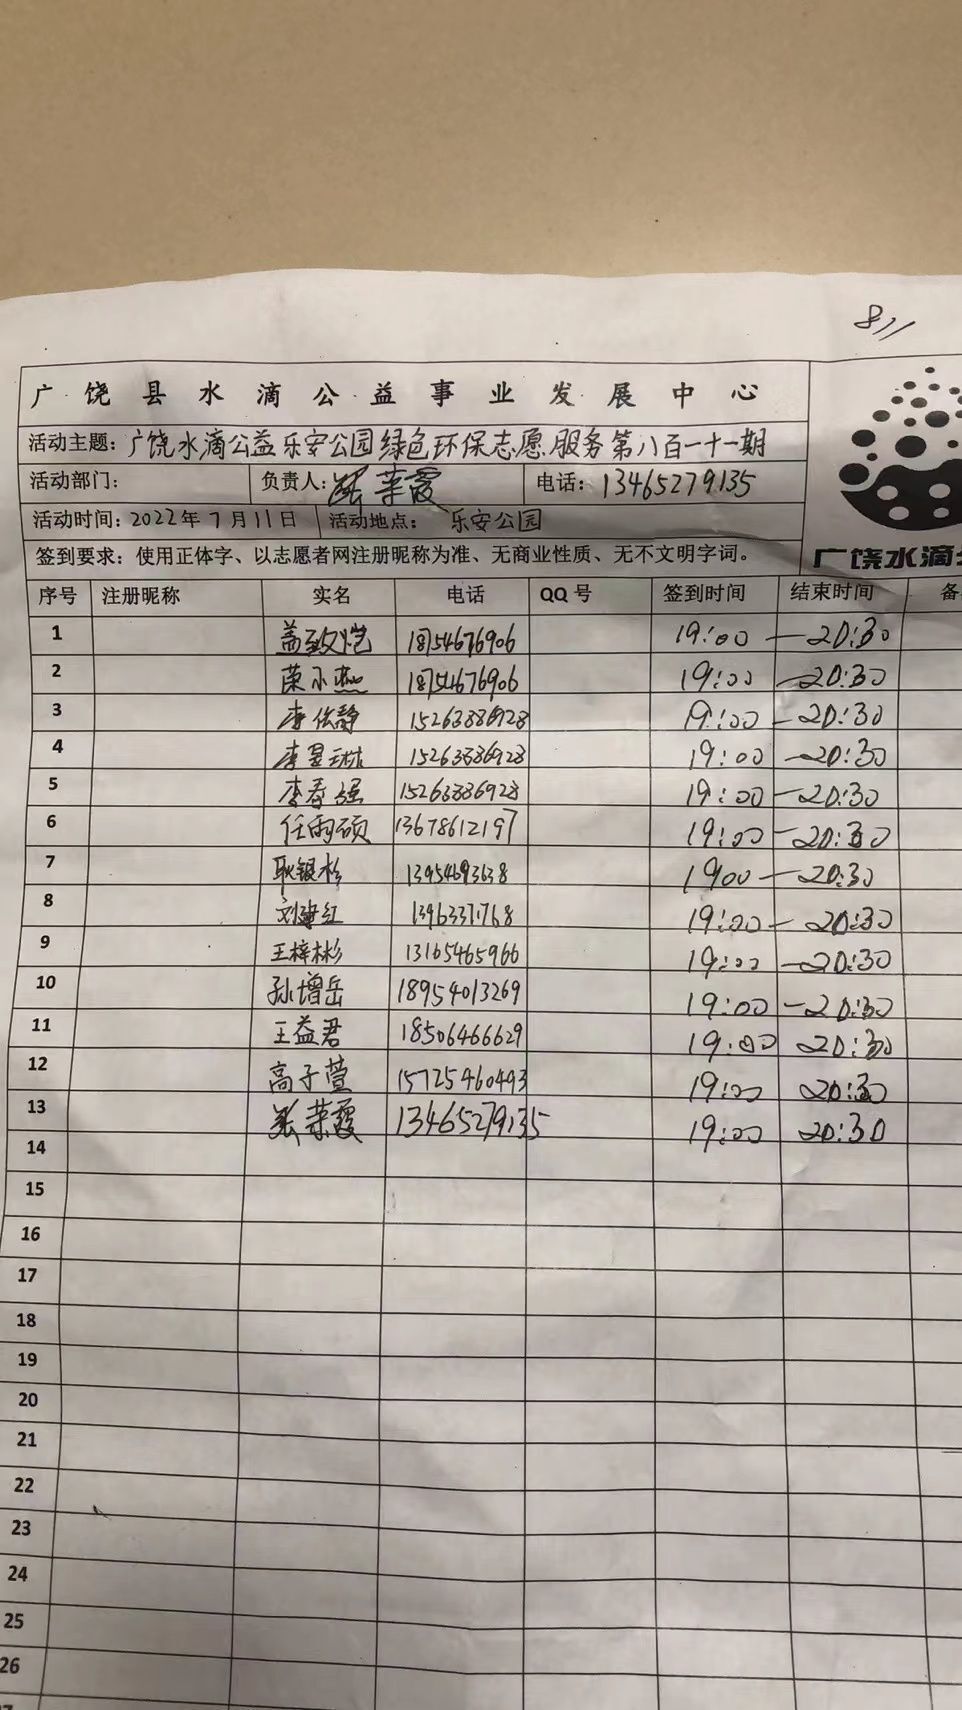 811
广饶县水滴公益事业发展中心
活动主题：广饶水滴公益乐安公园绿色环保志愿服务第八百一十一期
活动部门： 负责人：张荣霞 电话：13465279135
活动时间：2022年7月11日 活动地点：乐安公园
签到要求：使用正体字、以志愿者网注册昵称为准、无商业性质、无不文明字词。
广饶水滴
序号 注册昵称 实名 电话 QQ号 签到时间 结束时间 备
1 18754676906 19:00 — 20:30
2 18754676906 19:00 — 20:30
3 李依静 15263886928 19:00 — 20:30
4 李昱琳 15263886928 19:00 — 20:30
5 李春强 15263886928 19:00 — 20:30
6 任雨硕 13678612197 19:00 — 20:30
7 耿银杉 1900 — 20:30
8 刘建红 19:00 — 20:30
9 王梓彬 13165465966 19:00 — 20:30
10 孙增岳 18954013269 19:00 — 20:30
11 王益君 18506466629 19:00 20:30
12 高子萱 15725460493 19:00 20:30
13 张荣霞 13465279135 19:00 20:30
14
15
16
17
18
19
20
21
22
23
24
25
26